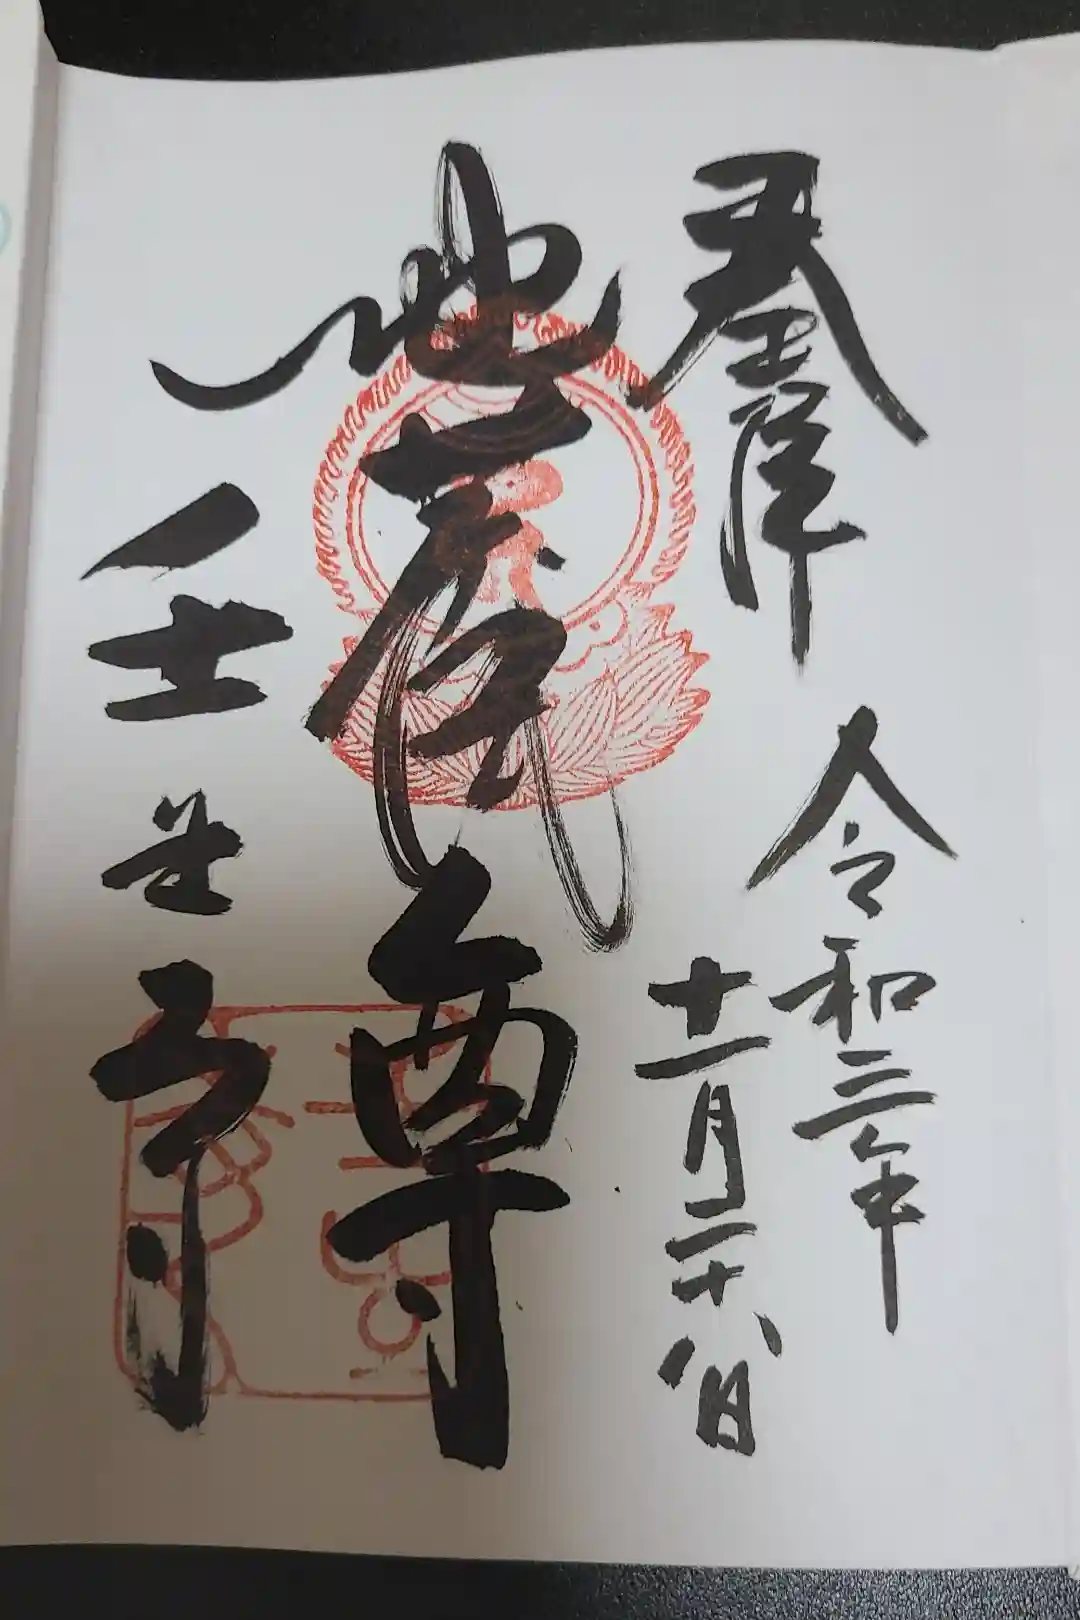 令和三年
十一月二十八日
地蔵尊
壬生寺